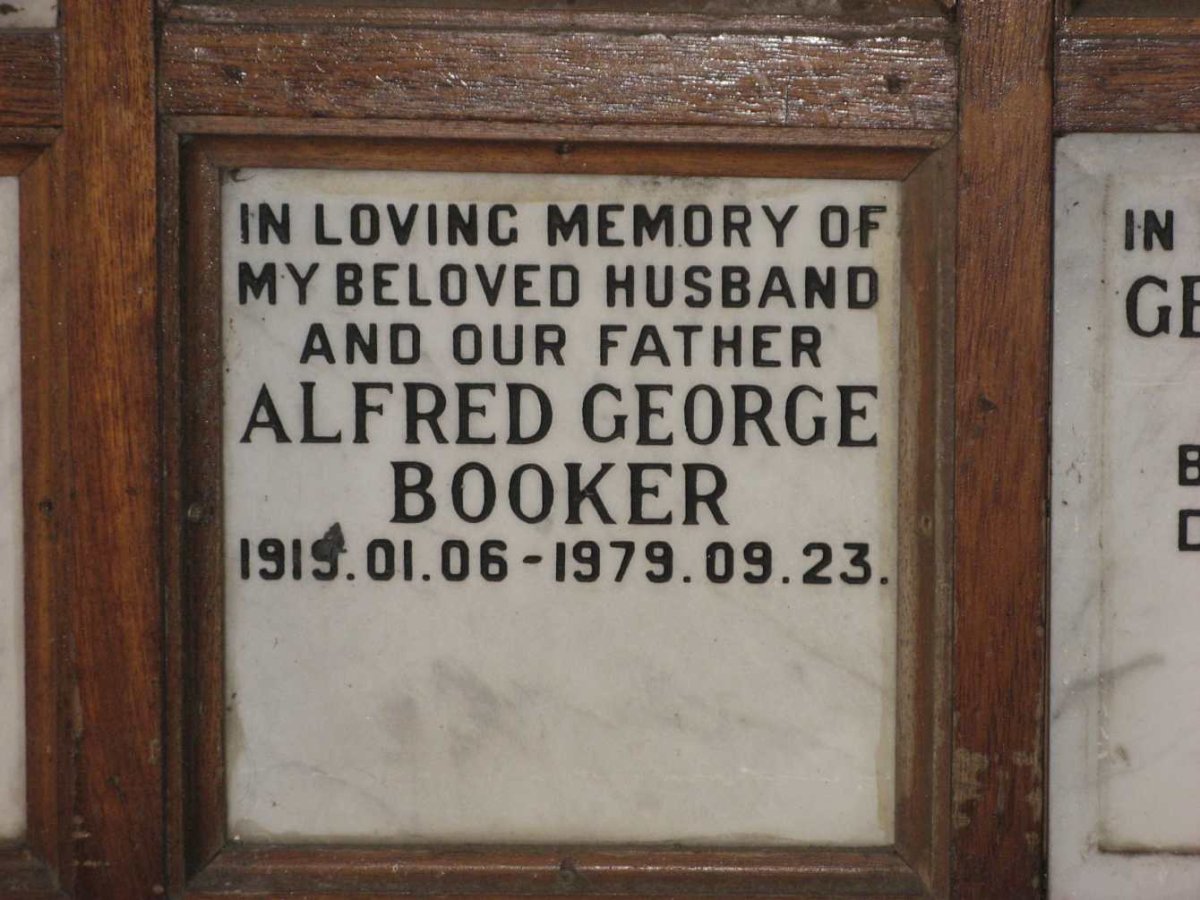 IN LOVING MEMORY OF
MY BELOVED HUSBAND
AND OUR FATHER
ALFRED GEORGE
BOOKER
1919.01.06-1979.09.23.
IN